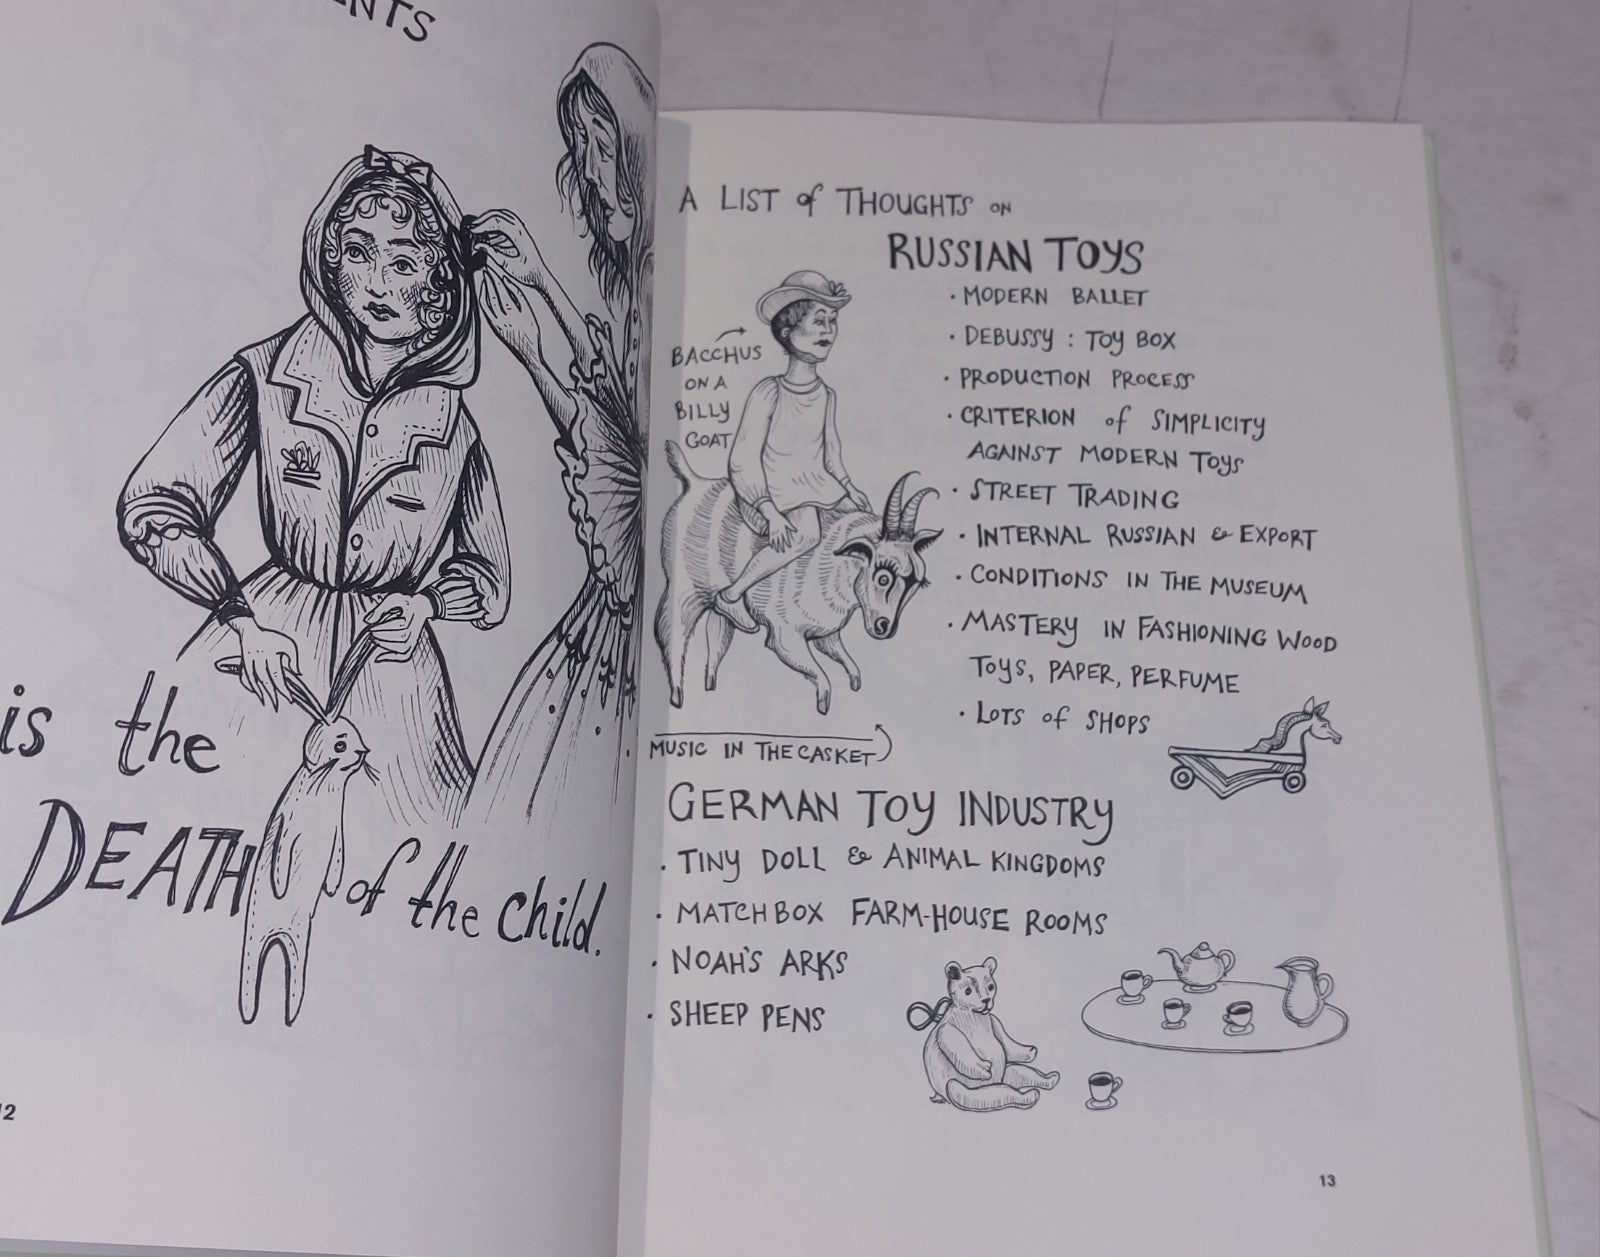 is the
DEATH of the child.
12
A LIST of THOUGHTS ON
RUSSIAN TOYS
· MODERN BALLET
· DEBUSSY : TOY BOX
· PRODUCTION PROCESS
· CRITERION of SIMPLICITY
AGAINST MODERN TOYS
· STREET TRADING
· INTERNAL RUSSIAN & EXPORT
· CONDITIONS IN THE MUSEUM
· MASTERY IN FASHIONING WOOD
TOYS, PAPER, PERFUME
· LOTS of SHOPS
BACCHUS
ON A
BILLY
GOAT
MUSIC IN THE CASKET
GERMAN TOY INDUSTRY
· TINY DOLL & ANIMAL KINGDOMS
· MATCHBOX FARM-HOUSE ROOMS
· NOAH'S ARKS
· SHEEP PENS
13